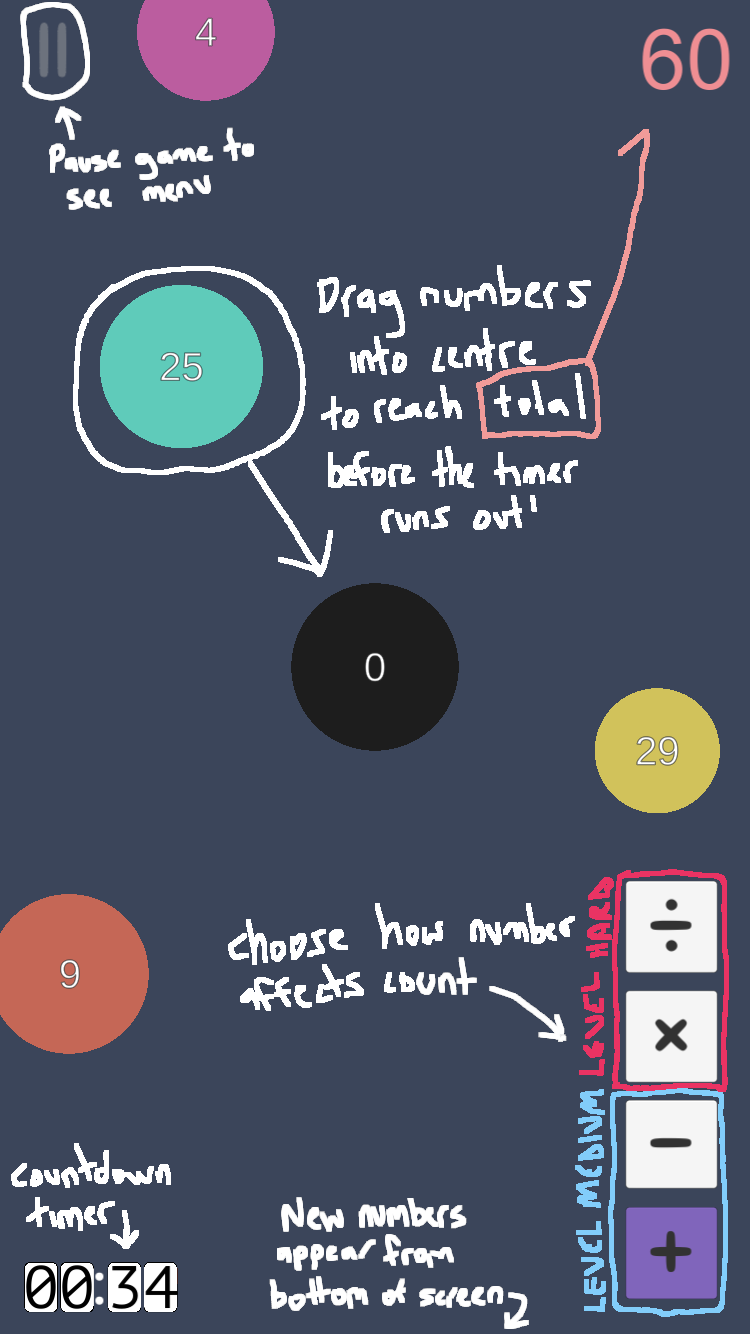 4
60
Pause game to
see menu
25
Drag numbers
into centre
to reach total
before the timer
runs out!
0
29
9
choose how number
affects count
LEVEL HARD
÷
×
LEVEL MEDIUM
−
+
countdown
timer
00:34
New numbers
appear from
bottom of screen